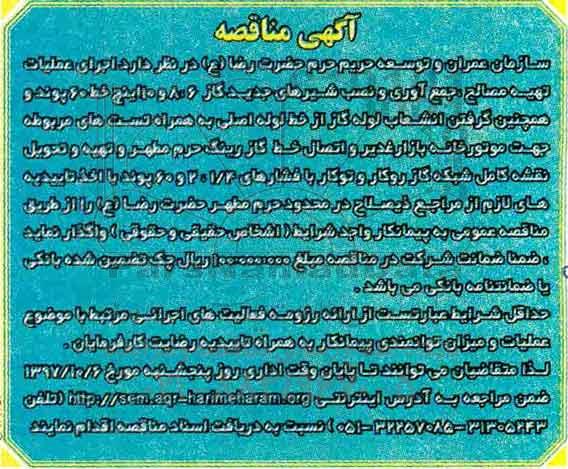 آگهی مناقصه
سازمان عمران و توسعه حریم حرم حضرت رضا (ع) در نظر دارد اجرای عملیات
تهیه مصالح ،جمع آوری و نصب شیرهای جدید گاز ۶ ،۸ و ۱۰اینچ خط ۶۰ پوند و
همچنین گرفتن انشعاب لوله گاز از خط لوله اصلی به همراه تست های مربوطه
جهت موتورخانه بازار غدیر و اتصال خط گاز رینگ حرم مطهر و تهیه و تحویل
نقشه کامل شبکه گاز روکار و توکار با فشارهای ۱/۴ ، ۲ و ۶۰ پوند با اخذ تاییدیه
های لازم از مراجع ذیصلاح در محدوده حرم مطهر حضرت رضا (ع) را از طریق
مناقصه عمومی به پیمانکار واجد شرایط ( اشخاص حقیقی و حقوقی ) واگذار نماید
، ضمنا ضمانت شرکت در مناقصه مبلغ ۱۰۰،۰۰۰،۰۰۰ ریال چک تضمین شده بانکی
یا ضمانتنامه بانکی می باشد .
حداقل شرایط عبارتست از ارائه رزومه فعالیت های اجرائی مرتبط با موضوع
عملیات و میزان توانمندی پیمانکار به همراه تاییدیه رضایت کارفرمایان .
لذا متقاضیان می توانند تا پایان وقت اداری روز پنجشنبه مورخ ۱۳۹۷/۱۰/۶
ضمن مراجعه به آدرس اینترنتی http://sem.aqr-harimeharam.org (تلفن
۳۱۳۰۵۲۴۳ –۳۲۲۵۷۰۸۵–۰۵۱ ) نسبت به دریافت اسناد مناقصه اقدام نمایند